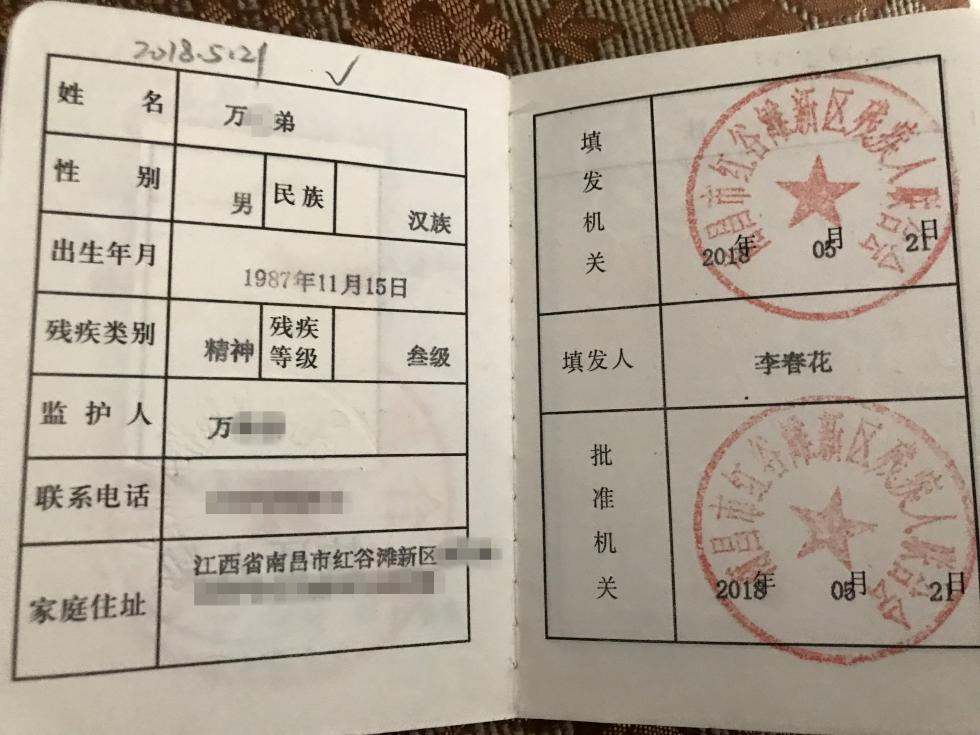 2018.5.21
姓名 万 弟
性别 男 民族 汉族
出生年月 1987年11月15日
残疾类别 精神 残疾等级 叁级
监护人 万
联系电话
家庭住址 江西省南昌市红谷滩新区
填发机关
南昌市红谷滩新区残疾人联合会
2018年 05月 21日
填发人 李春花
批准机关
南昌市红谷滩新区残疾人联合会
2018年 05月 21日